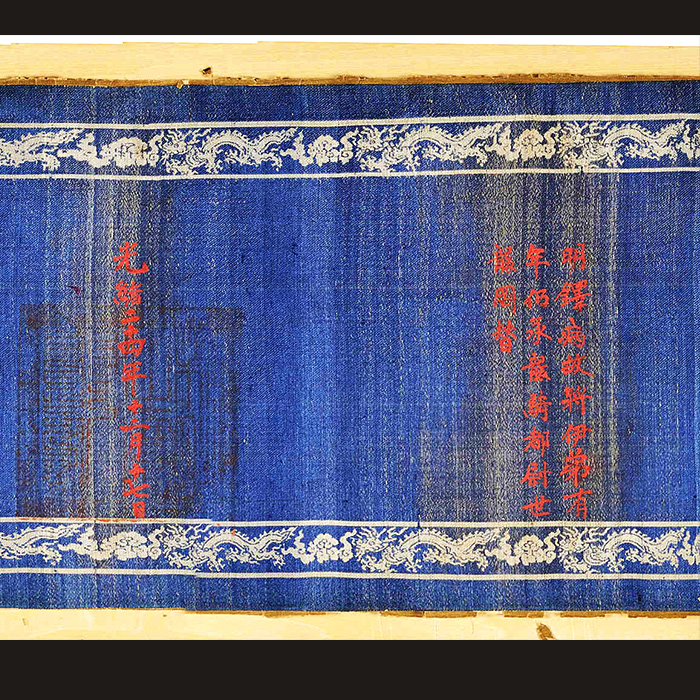 明鐸病故將伊弟有
年仍承襲騎都尉世
襲罔替
光緒二十四年十二月十七日